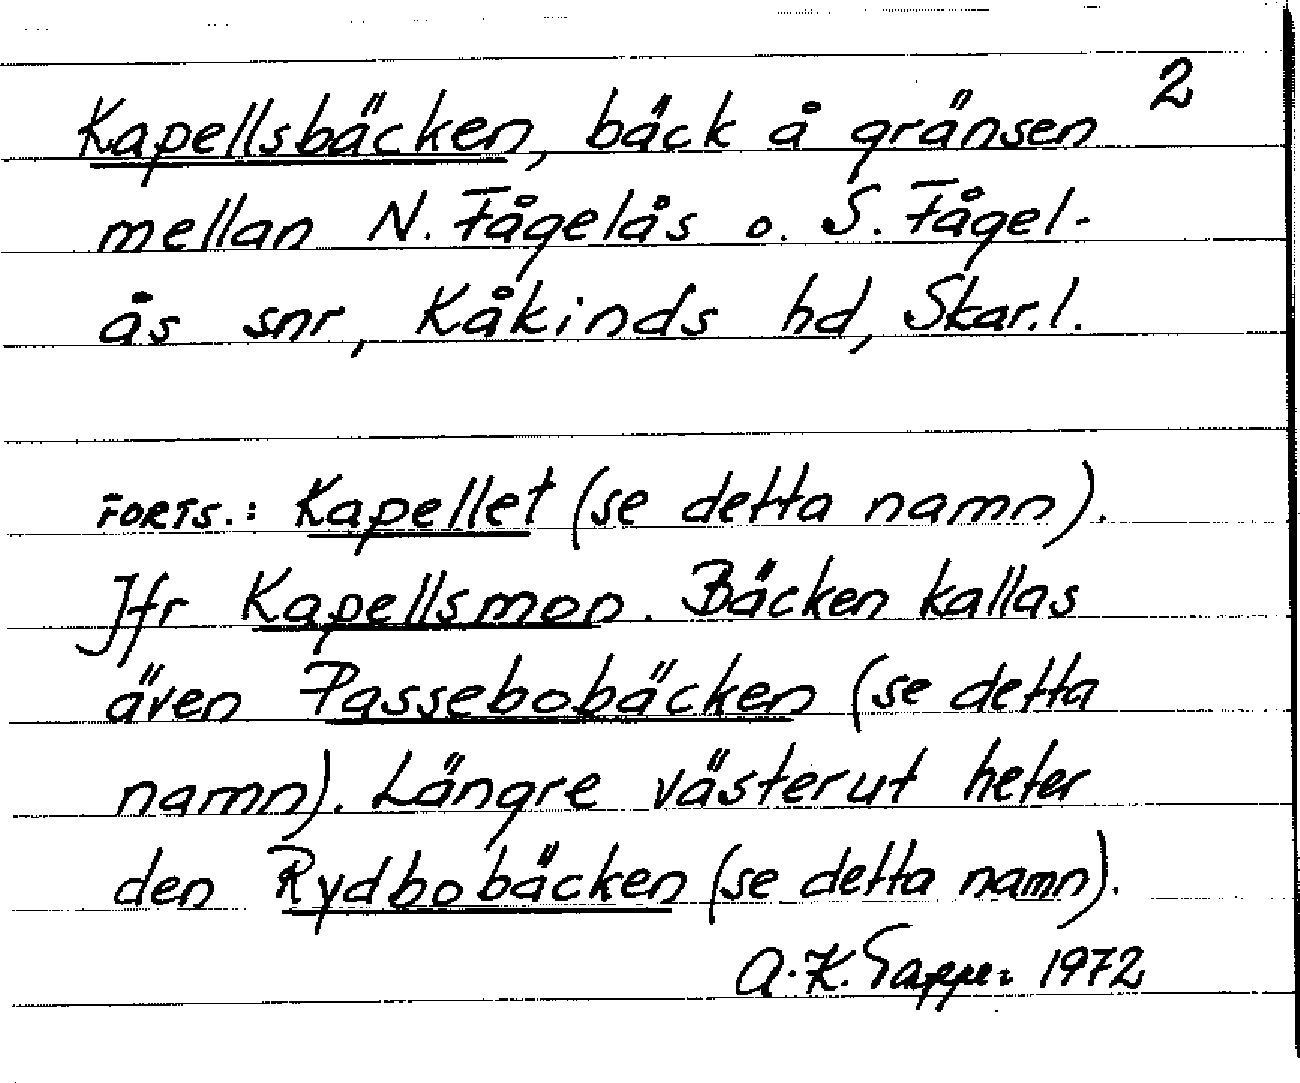 2
Kapellsbäcken, bäck å gränsen
mellan N. Fågelås o. S. Fågel-
ås snr, Kåkinds hd, Skar.l.
FORTS.: Kapellet (se detta namn).
Jfr Kapellsmon. Bäcken kallas
även Passebobäcken (se detta
namn). Längre västerut heter
den Rydbobäcken (se detta namn).
A.K. Tapper 1972